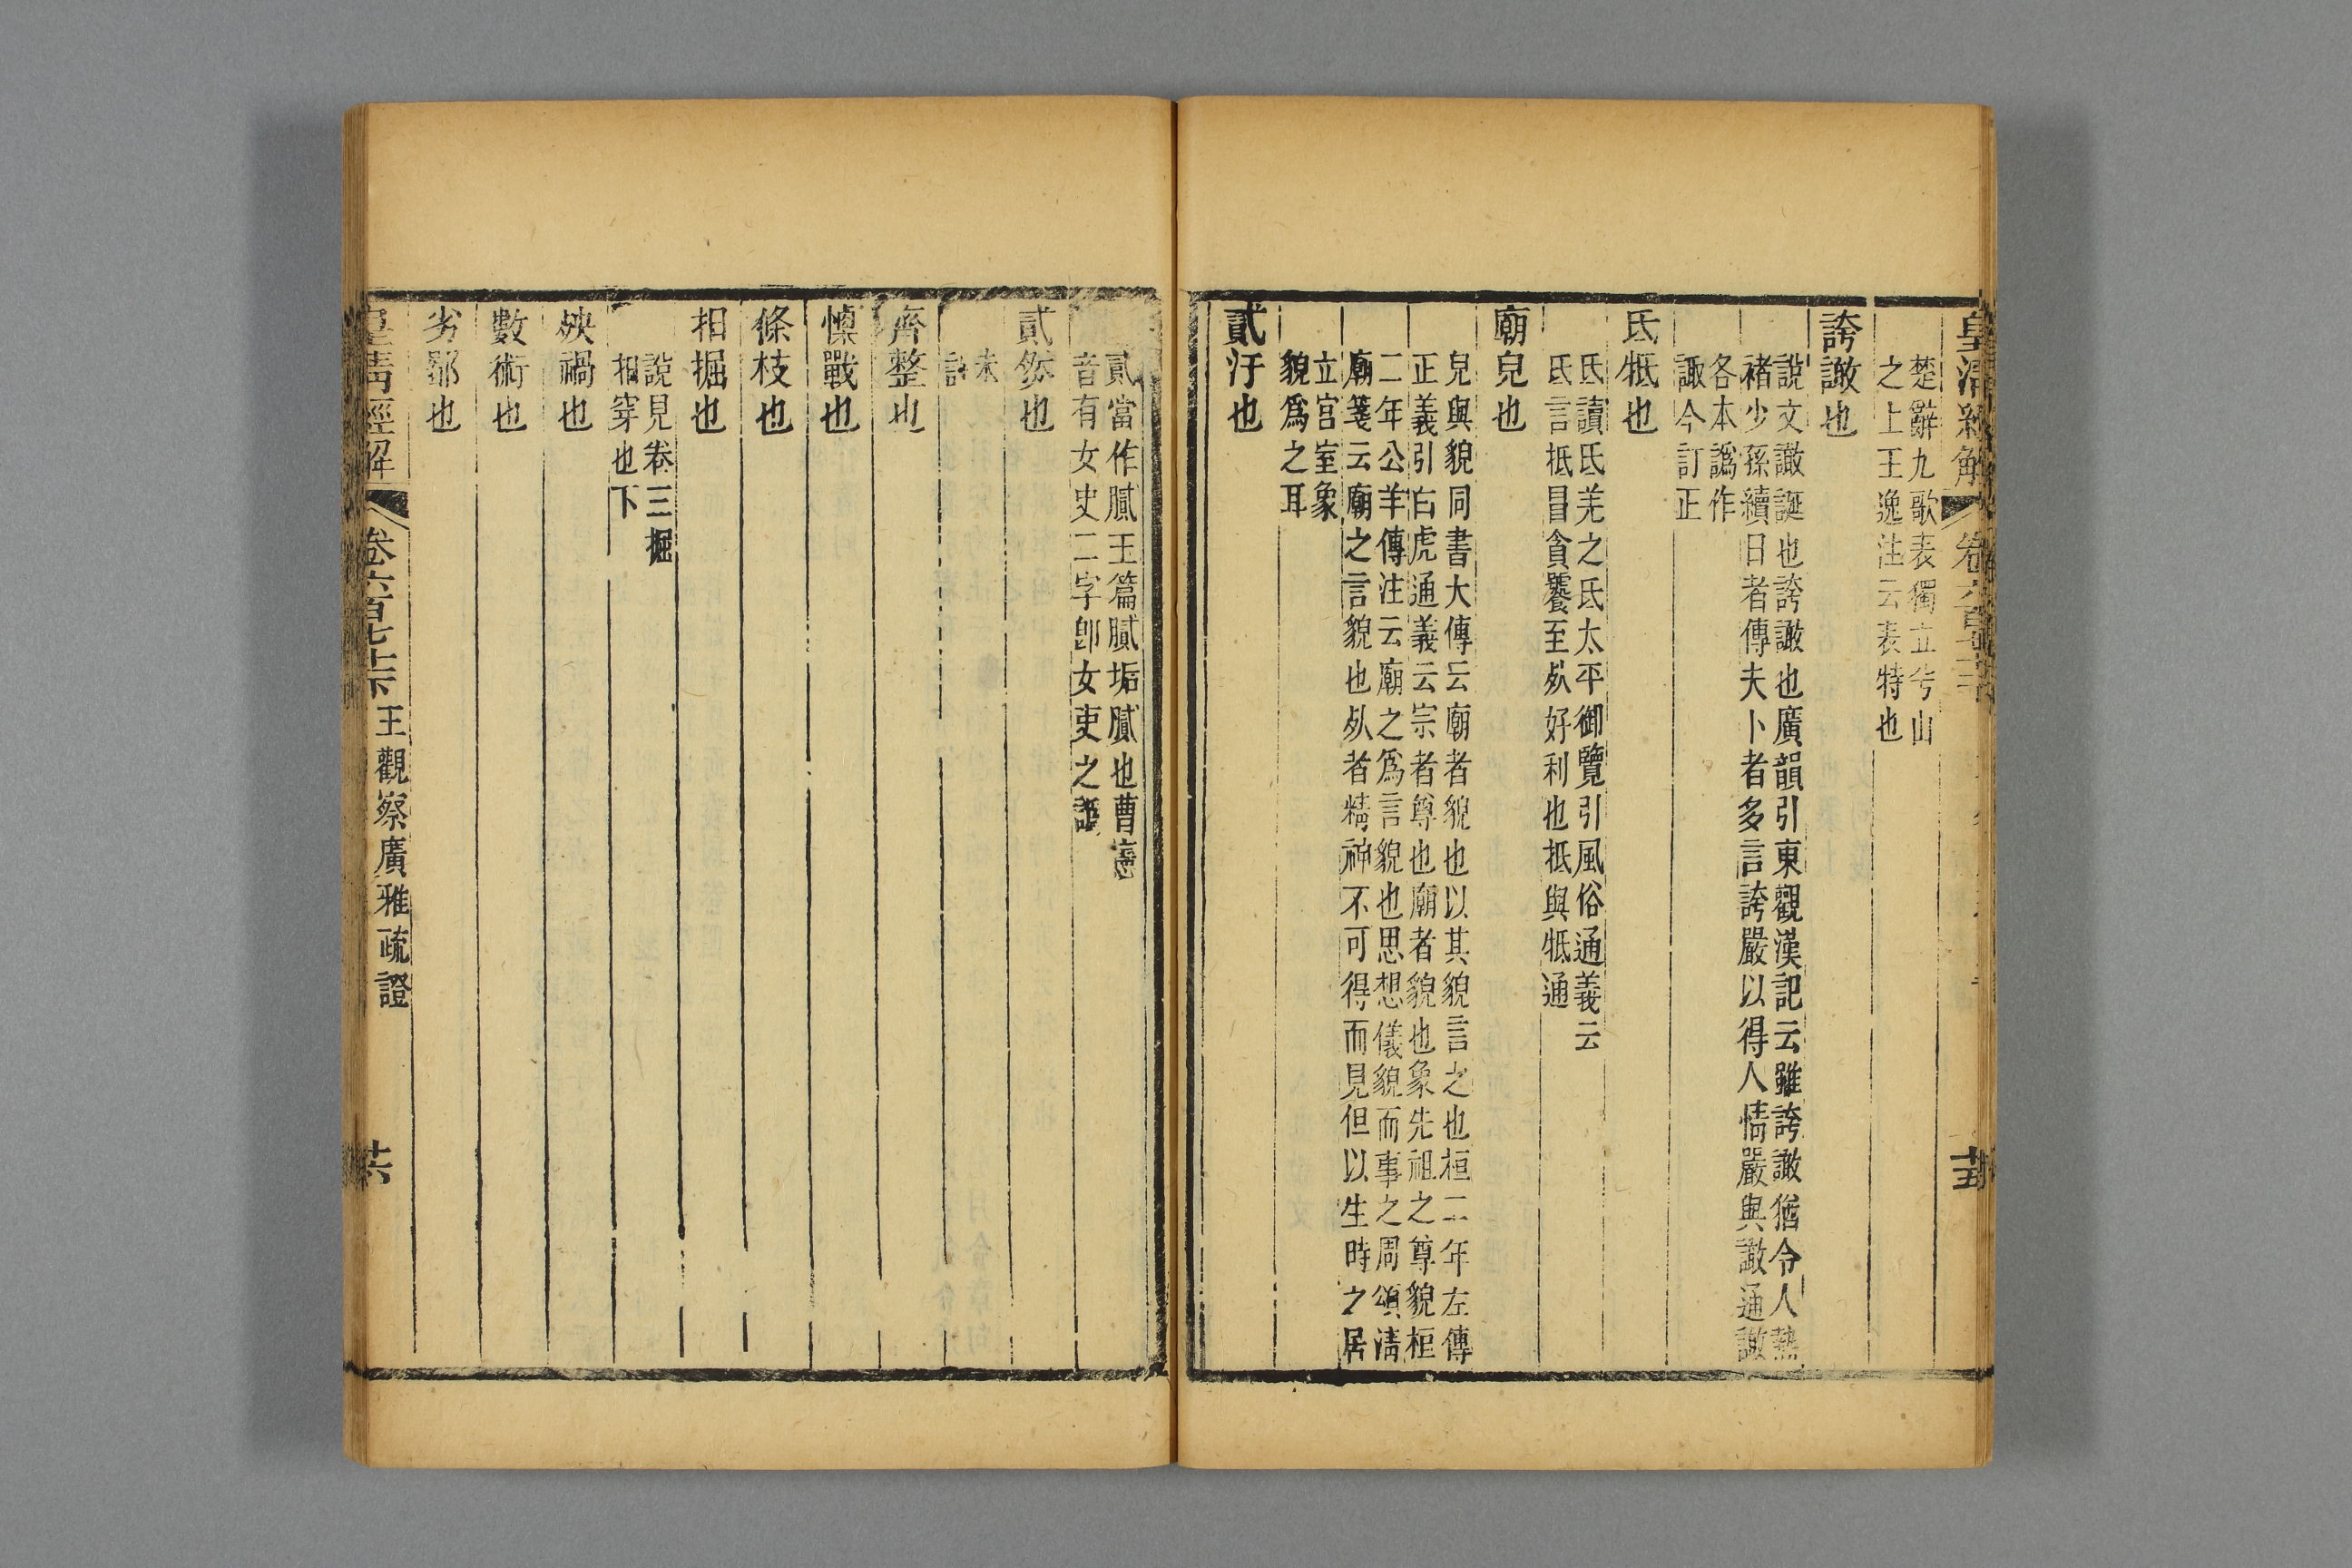 皇清經解
卷六百七十下
楚辭九歌表獨立兮山
之上王逸注云表特也
誇譀也
說文譀誕也誇譀也廣韻引東觀漢記云雖誇譀猶令人熱
褚少孫續日者傳夫卜者多言誇嚴以得人情嚴與譀通譀
各本譌作
諏今訂正
氐牴也
氐讀氐羌之氐太平御覽引風俗通義云
氐言抵冒貪饕至𣦸好利也抵與牴通
廟皃也
皃與貌同書大傳云廟者貌也以其貌言之也桓二年左傳
正義引白虎通義云宗者尊也廟者貌也象先祖之尊貌桓
二年公羊傳注云廟之為言貌也思想儀貌而事之周頌淸
廟箋云廟之言貌也𣦸者精神不可得而見但以生時之居
立宮室象
貌為之耳
貳汙也
貳當作膩玉篇膩垢膩也曹憲
音有女史二字卽女吏之譌
貳然也
未
詳
齊整也
慄戰也
條枝也
抇掘也
說見卷三掘
抇穿也下
殃禍也
數術也
劣鄙也
皇清經解
卷六百七十下
王觀察廣雅疏證
十六